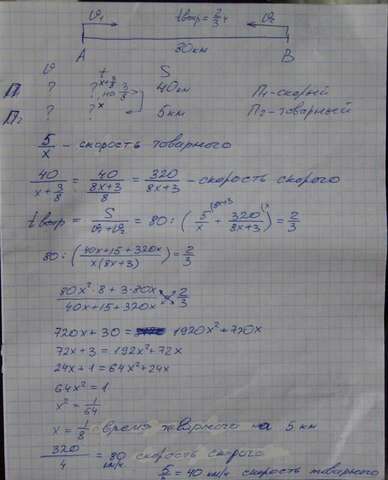 v₁ tвстр = 2/3 ч v₂
A 80 км B
v t S
П₁ ? ? на 3/8 40 км П₁-скорый
П₂ ? ? x 5 км П₂-товарный
5/x - скорость товарного
40/(x+3/8) = 40/((8x+3)/8) = 320/(8x+3) - скорость скорого
tвстр = S/(v₁+v₂) = 80 : (5/x + 320/(8x+3)) = 2/3
80 : ((40x+15+320x)/(x(8x+3))) = 2/3
(80x²·8+3·80x)/(40x+15+320x) = 2/3
720x+30 = 1920x²+720x
72x+3 = 192x²+72x
24x+1 = 64x²+24x
64x² = 1
x² = 1/64
x = 1/8 время товарного на 5 км
320/4 = 80 км/ч скорость скорого
= 40 км/ч скорость товарного